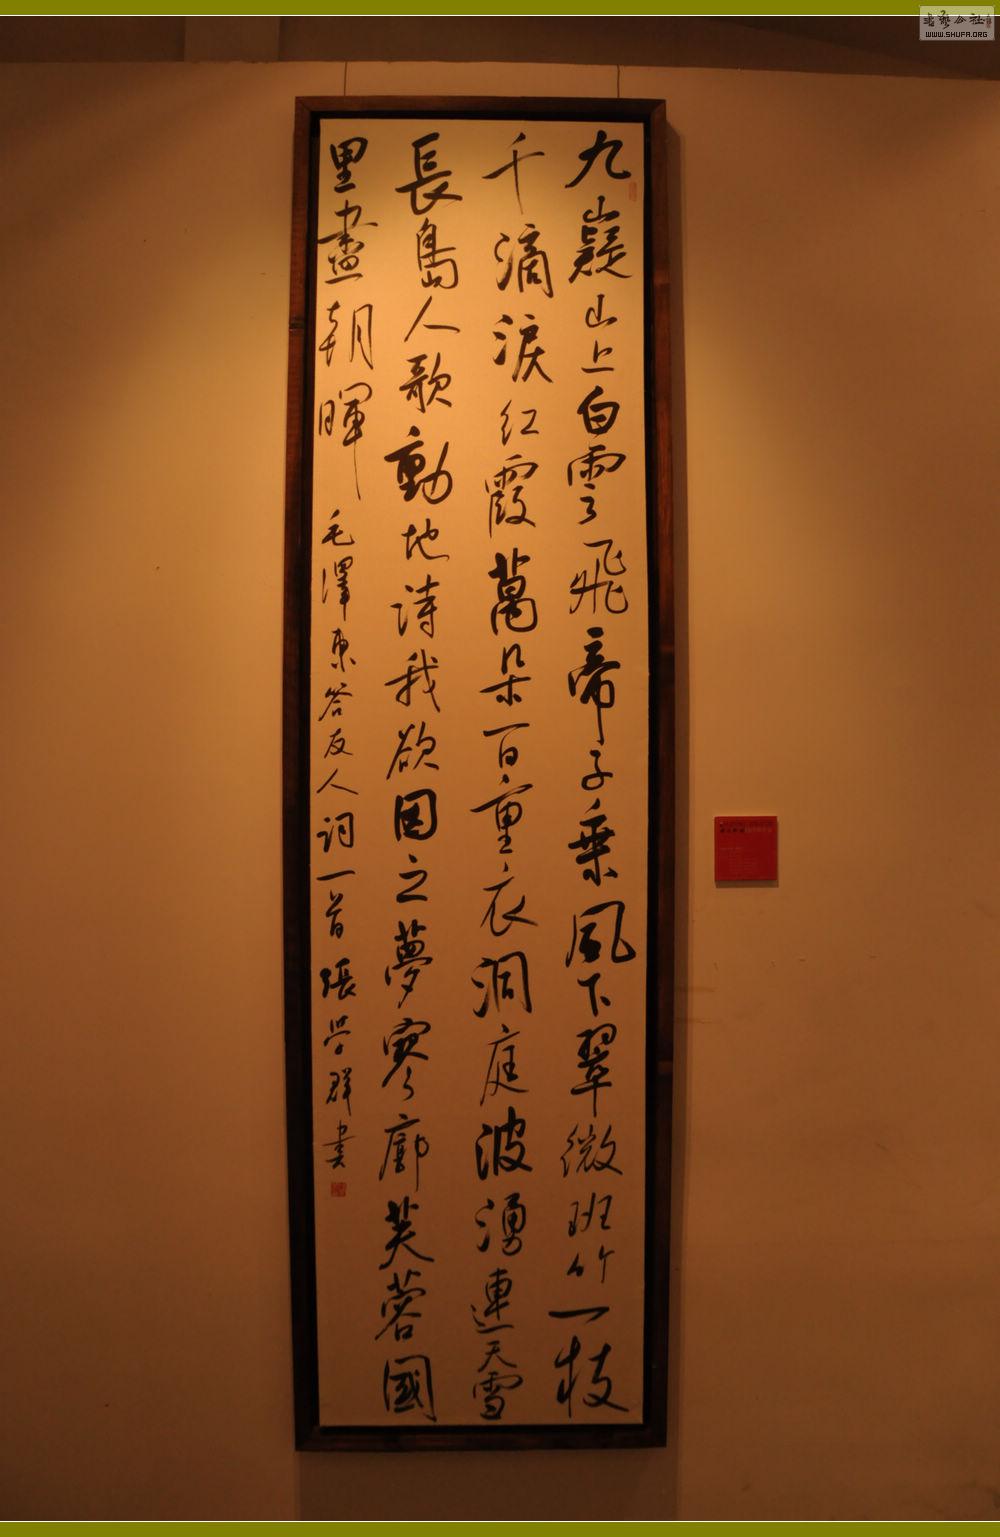 九嶷山上白雲飛帝子乘風下翠微班竹一枝
千滴淚紅霞萬朵百重衣洞庭波湧連天雪
長島人歌動地詩我欲因之夢寥廓芙蓉國
里盡朝暉 毛澤東答友人詞一首 張学群書
書藝公社
WWW.SHUFA.ORG